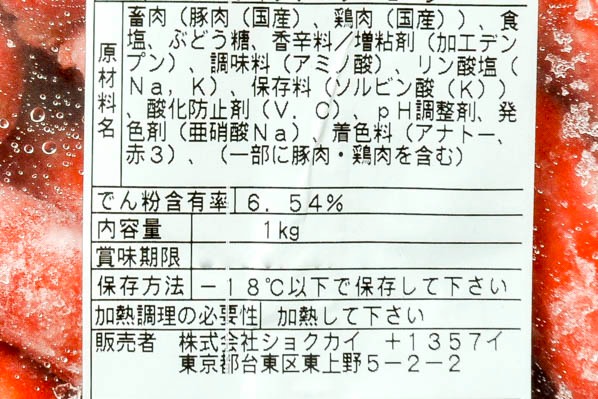 原材料名
畜肉（豚肉（国産）、鶏肉（国産））、食
塩、ぶどう糖、香辛料／増粘剤（加工デン
プン）、調味料（アミノ酸）、リン酸塩（
Ｎａ，Ｋ）、保存料（ソルビン酸（Ｋ））
、酸化防止剤（Ｖ．Ｃ）、ｐＨ調整剤、発
色剤（亜硝酸Ｎａ）、着色料（アナトー、
赤３）、（一部に豚肉・鶏肉を含む）
でん粉含有率 ６．５４％
内容量 １kg
賞味期限
保存方法 －１８℃以下で保存して下さい
加熱調理の必要性 加熱して下さい
販売者 株式会社ショクカイ ＋１３５７イ
東京都台東区東上野５－２－２